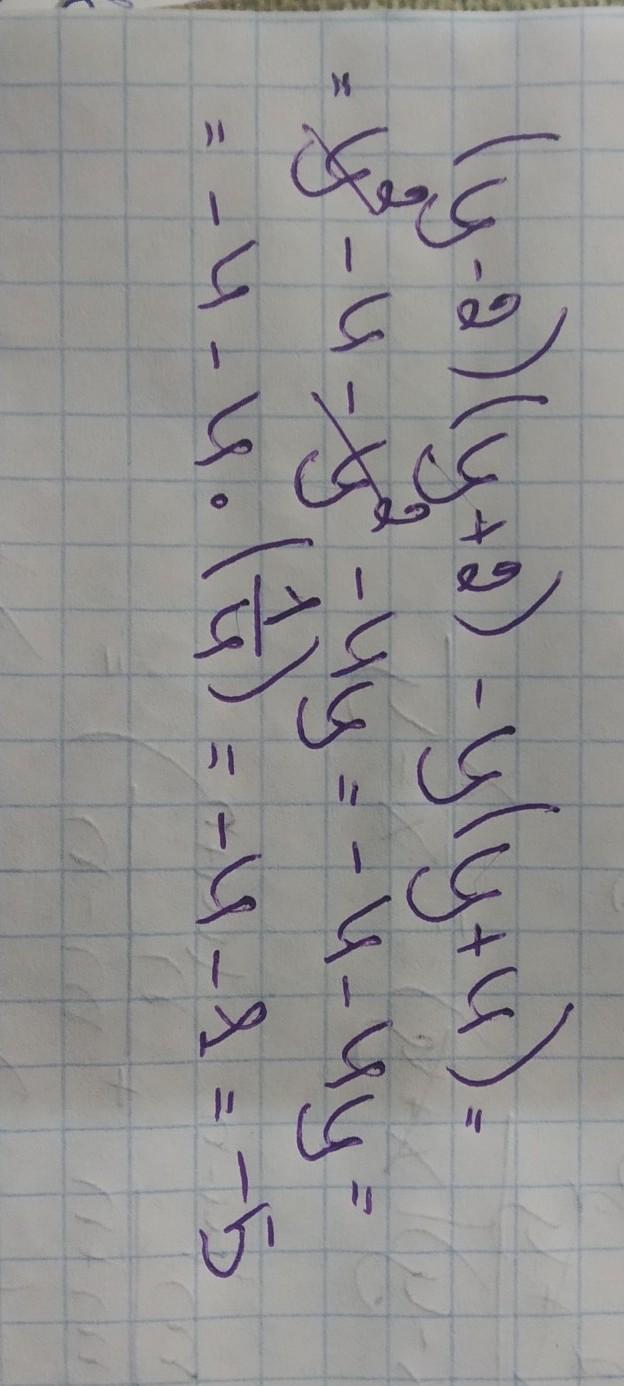 (y-2)(y+2)-y(y+4)=
=y²-4-y²-4y=-4-4y=
=-4-4·(1/4)=-4-1=-5